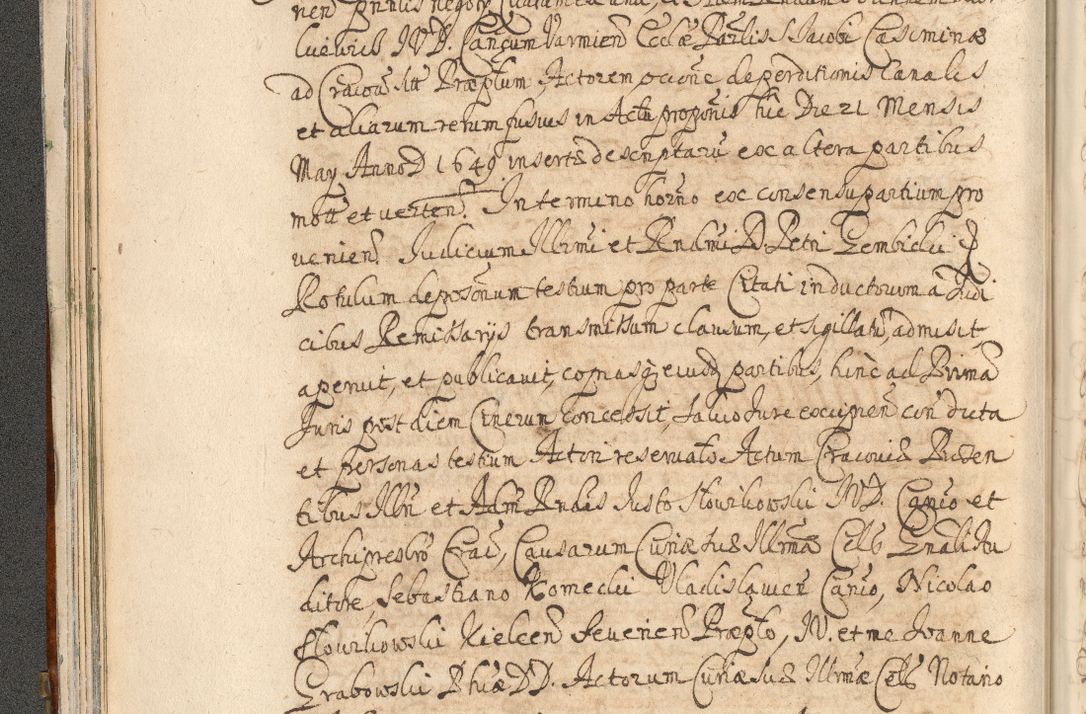 luewicz IVD. Cancum Varmien Ecclæ Parlis S Jacobi Casiminæ
ad Cracov sitt Præptum Actorem ocione deperditionis Canalis
et aliarum rerum fusius in Actu proponis hic Die 21 Mensis
May Anno D 1649 insert descriptarum ex altera partibus
mott et verten. In termino horno ex consensu partium pro
venien. Iudicium Illrmi et Rndmi D. Petri Gembicki
Rotulum deposonum testium pro parte Citati inductorum a Iudi
cibus Remissarijs transmissum clausum, et sigillatu, admisit,
aperuit, et publicavit, copiasq eiusd partibus, hinc ad Prima
Juris post diem Cinerum concessit, salvo Iure excipien con dicta
et personas testium Actori reservato. Actum Cracoviæ Præsen
tibus Illri et Adm Rndis Justo Slowikowski IVD. Canco et
Archipresbro Crac, Causarum Curiæ suæ Illrmæ Cels Gnali Au
ditore, Sebastiano Komecki Vladislavien Canco, Nicolao
Slowikowski Kielcen Severien Præpto, IV. et me Joanne
Grabowski Phiæ DD. Actorum Curiæ suæ Illrmæ Cels Notario